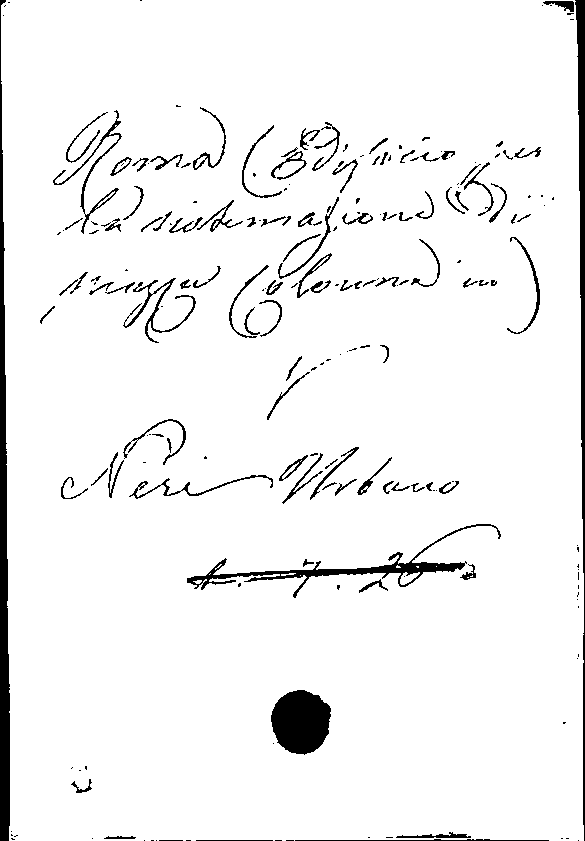 Roma (Edificio per
la sistemazione di
piazza Colonna in)
V
Neri Urbano
1. 7. 26